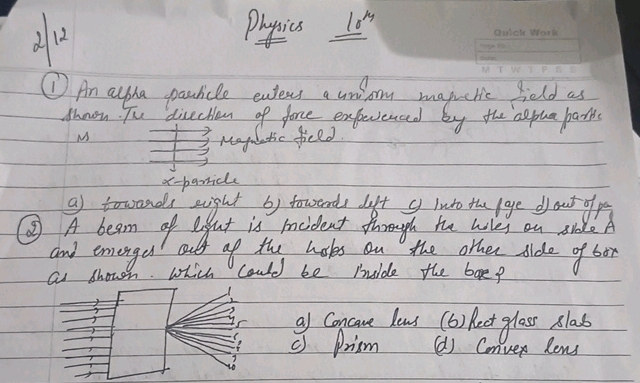 Physics 10M
2/12
Quick Work
M T W T F S S
① An alpha particle enters a uniform magnetic field as
shown. The direction of force experienced by the alpha partic
is
Magnetic field.
α-particle
a) towards right b) towards left c) Into the page d) out of pa
② A beam of light is incident through the holes on side A
and emerges out of the hobs on the other side of box
as shown. Which could be inside the box?
a) Concave lens (b) Rect glass slab
c) Prism (d) Convex lens